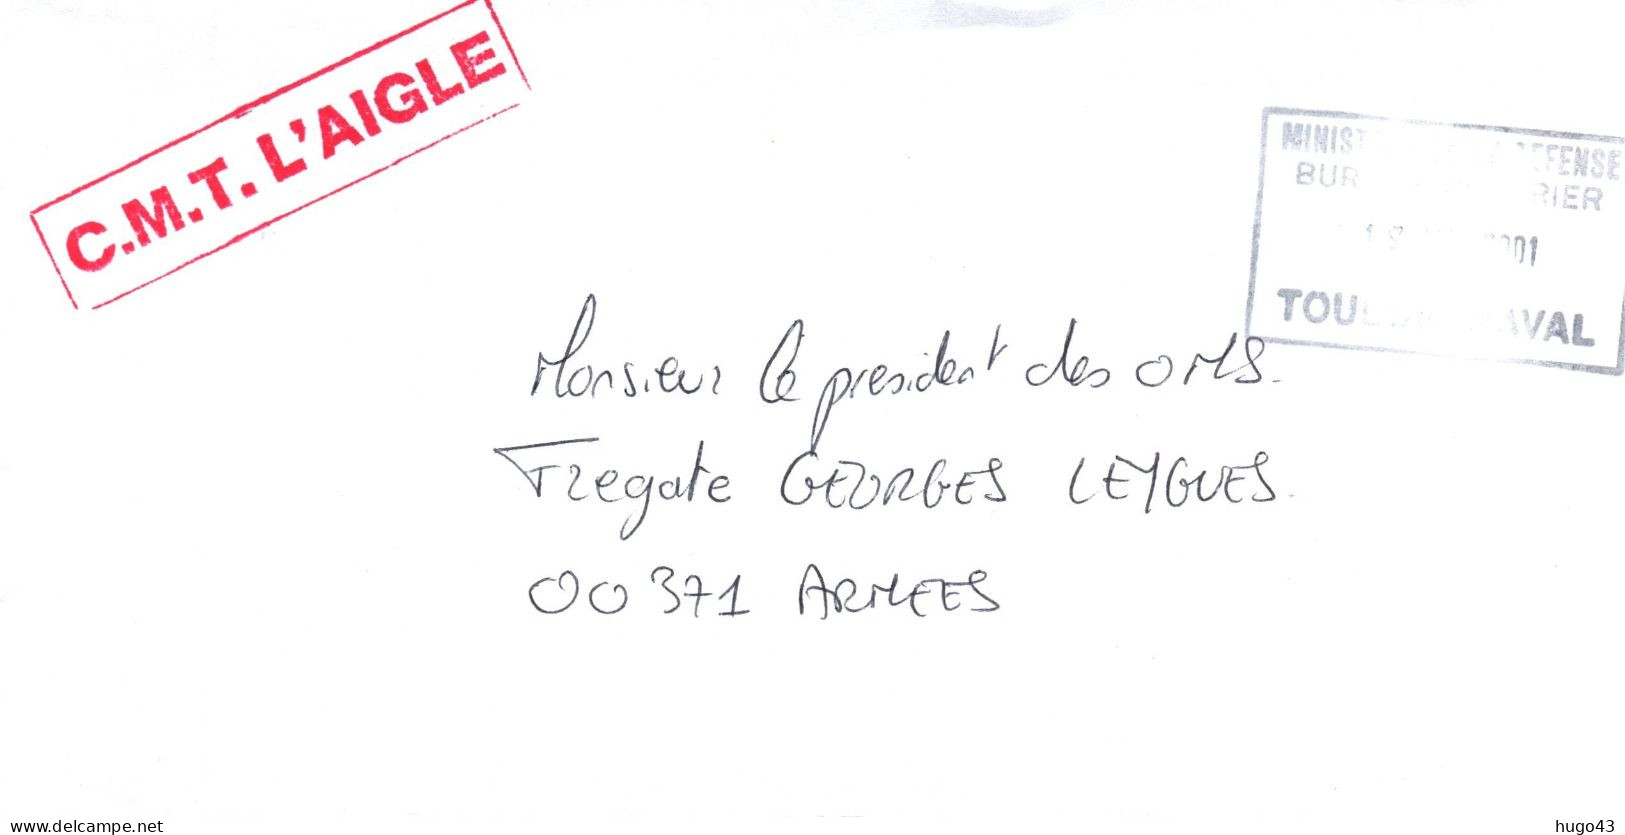 C.M.T. L'AIGLE
DEFENSE
TOULON NAVAL
Monsieur le president des OMS.
Fregate GEORGES LEYGUES.
00371 ARMEES
www.delcampe.net
hugo43